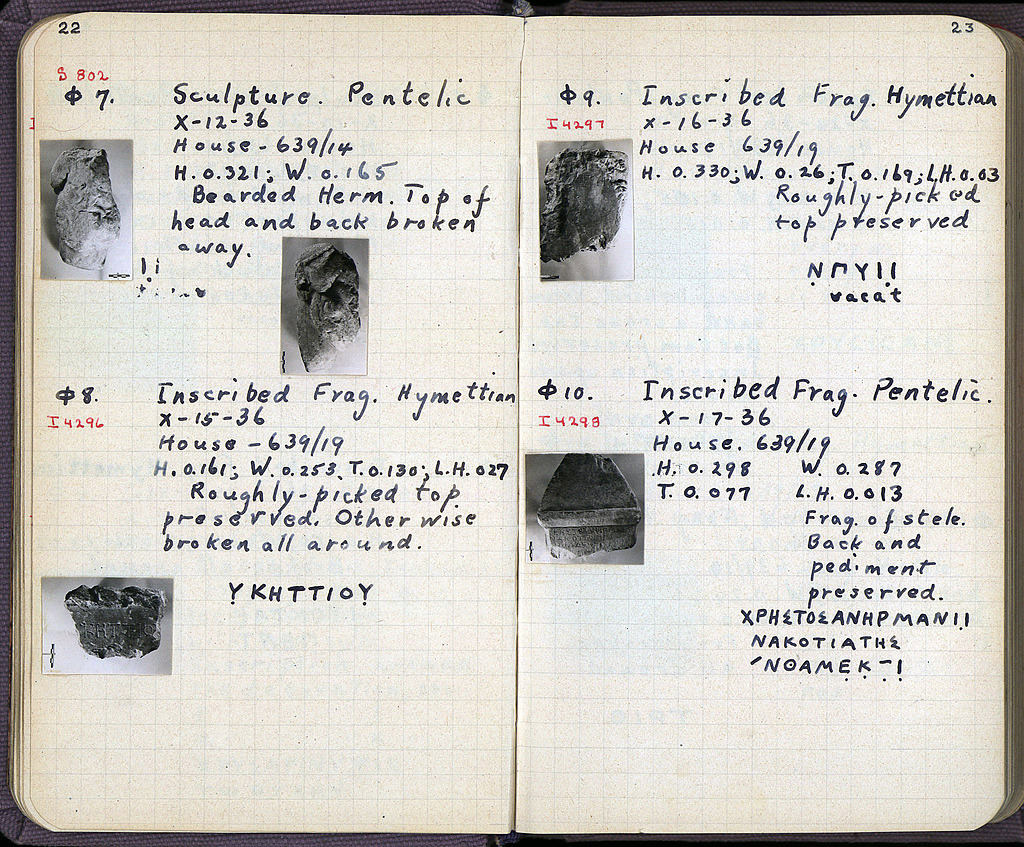 22
S 802
Φ 7. Sculpture. Pentelic
X-12-36
House - 639/14
H. 0.321; W. 0.165
Bearded Herm. Top of
head and back broken
away.
Φ8. Inscribed Frag. Hymettian
I 4296
X-15-36
House - 639/19
H. 0.161; W. 0.253, T. 0.130; L.H. 027
Roughly-picked top
preserved. Otherwise
broken all around.
Ụ ΚΗΤΤΙΟΥ̣
23
Φ9. Inscribed Frag. Hymettian
I 4297
X-16-36
House 639/19
H. 0.330; W. 0.26; T. 0.169; L.H. 0.03
Roughly-picked
top preserved
Ν̣ΠΥΙ̣Ι̣
vacat
Φ10. Inscribed Frag. Pentelic.
I 4298
X-17-36
House. 639/19
H. 0.298 W. 0.287
T. 0.077 L.H. 0.013
Frag. of stele.
Back and
pediment
preserved.
ΧΡΗΣΤΟΣΑΝΗΡΜΑΝΙ̣Ι̣
ΝΑΚΟΤΙΑΤΗΣ
ΝΘΑΜΕ̣Κ̣